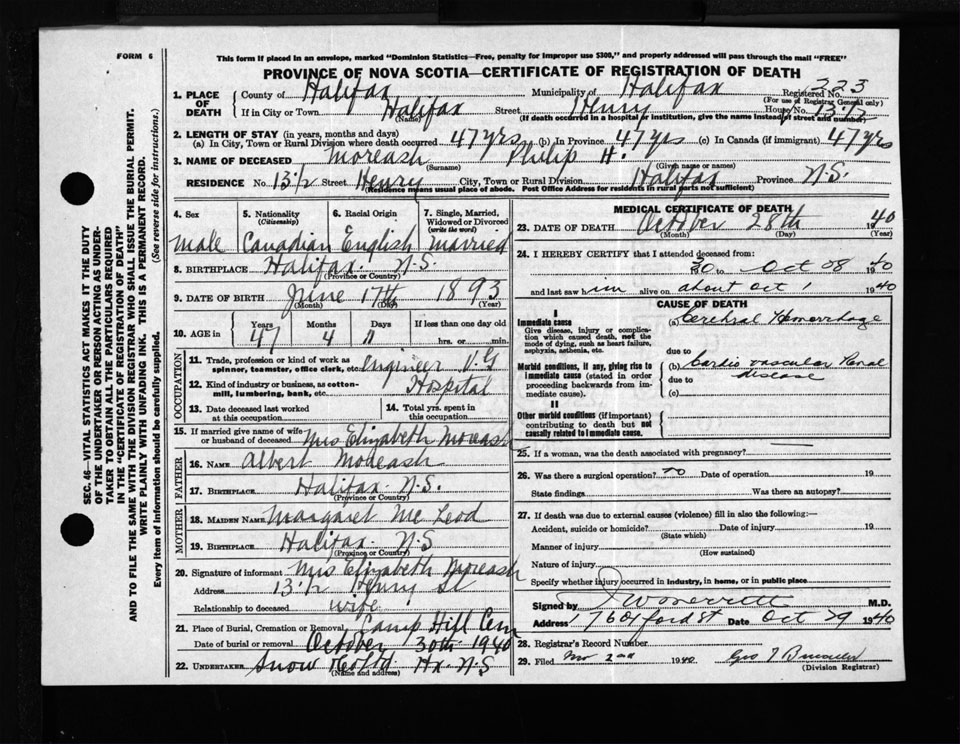 FORM 6
This form if placed in an envelope, marked "Dominion Statistics—Free, penalty for improper use $300," and properly addressed will pass through the mail "FREE"
PROVINCE OF NOVA SCOTIA—CERTIFICATE OF REGISTRATION OF DEATH
Registered No. 223
(For use of Registrar General only)
1. PLACE OF DEATH
County of Halifax Municipality of Halifax
If in City or Town Halifax Street Henry House No. 13½
(Name) (If death occurred in a hospital or institution, give the name instead of street and number)
2. LENGTH OF STAY (in years, months and days)
(a) In City, Town or Rural Division where death occurred 47 yrs (b) In Province 47 yrs (c) In Canada (if immigrant) 47 yrs
3. NAME OF DECEASED Moreash Philip H.
(Surname) (Given name or names)
RESIDENCE No 13½ Street Henry City, Town or Rural Division Halifax Province N.S.
(Residence means usual place of abode. Post Office Address for residents in rural parts not sufficient)
4. Sex
male
5. Nationality
(Citizenship)
Canadian
6. Racial Origin
English
7. Single, Married, Widowed or Divorced
(write the word)
married
8. BIRTHPLACE Halifax N.S.
(Province or Country)
9. DATE OF BIRTH June 17th 1893
(Month) (Day) (Year)
10. AGE in
Years Months Days If less than one day old
47 4 11 hrs. or min.
OCCUPATION
11. Trade, profession or kind of work as spinner, teamster, office clerk, etc. Engineer V.G
12. Kind of industry or business, as cotton-mill, lumbering, bank, etc. Hospital
13. Date deceased last worked at this occupation
14. Total yrs. spent in this occupation
15. If married give name of wife or husband of deceased Mrs Elizabeth Moreash
FATHER
16. NAME Albert Moreash
17. BIRTHPLACE Halifax N.S.
(Province or Country)
MOTHER
18. MAIDEN NAME Margaret Mc Leod
19. BIRTHPLACE Halifax N.S
(Province or Country)
20. Signature of informant Mrs Elizabeth Moreash
Address 13½ Henry St
Relationship to deceased wife
21. Place of Burial, Cremation or Removal Camp Hill Cem
Date of burial or removal October 30th 1940
22. UNDERTAKER Snow & Co Ltd. Hx. N.S
(Name and address)
MEDICAL CERTIFICATE OF DEATH
23. DATE OF DEATH October 28th 1940
(Month) (Day) (Year)
24. I HEREBY CERTIFY that I attended deceased from:
to Oct 1940
and last saw him alive on about Oct 1 1940
CAUSE OF DEATH
I
Immediate cause
Give disease, injury or complication which caused death, not the mode of dying, such as heart failure, asphyxia, asthenia, etc.
(a) Cerebral Hemorrhage
due to
Morbid conditions, if any, giving rise to immediate cause (stated in order proceeding backwards from immediate cause)
(b) Cardio vascular Renal disease
due to
(c)
II
Other morbid conditions (if important) contributing to death but not causally related to immediate cause.
25. If a woman, was the death associated with pregnancy?
26. Was there a surgical operation? no Date of operation 19
State findings Was there an autopsy?
27. If death was due to external causes (violence) fill in also the following:—
Accident, suicide or homicide? Date of injury 19
(State which)
Manner of injury
(How sustained)
Nature of injury
Specify whether injury occurred in industry, in home, or in public place
Signed by M.D.
Address 176 Oxford St Date Oct 29 1940
28. Registrar's Record Number
29. Filed Nov 2nd 1940
(Division Registrar)
SEC. 46—VITAL STATISTICS ACT MAKES IT THE DUTY
OF THE UNDERTAKER OR PERSON ACTING AS UNDER-
TAKER TO OBTAIN ALL THE PARTICULARS REQUIRED
IN THE "CERTIFICATE OF REGISTRATION OF DEATH"
AND TO FILE THE SAME WITH THE DIVISION REGISTRAR WHO SHALL ISSUE THE BURIAL PERMIT.
WRITE PLAINLY WITH UNFADING INK. THIS IS A PERMANENT RECORD.
Every item of information should be carefully supplied. (See reverse side for instructions.)